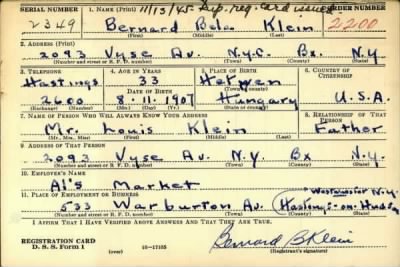 SERIAL NUMBER 1. NAME (Print) 11/13/45 Dup. reg. card issued ORDER NUMBER
2349 Bernard Bela Klein 2200
(First) (Middle) (Last)
2. ADDRESS (Print)
2093 Vyse Av. N.Y.C. Bx. N.Y
(Number and street or R. F. D. number) (Town) (County) (State)
3. TELEPHONE 4. AGE IN YEARS 5. PLACE OF BIRTH 6. COUNTRY OF CITIZENSHIP
Hastings 33 Hetwen
DATE OF BIRTH
2600 8-11-1907 Hungary U.S.A.
(Exchange) (Number) (Mo.) (Day) (Yr.) (State or country)
7. NAME OF PERSON WHO WILL ALWAYS KNOW YOUR ADDRESS 8. RELATIONSHIP OF THAT PERSON
Mr. Louis Klein Father
(Mr., Mrs., Miss) (First) (Middle) (Last)
9. ADDRESS OF THAT PERSON
2093 Vyse Av. N.Y. Bx N.Y.
(Number and street or R. F. D. number) (Town) (County) (State)
10. EMPLOYER'S NAME
Al's Market
11. PLACE OF EMPLOYMENT OR BUSINESS Westchester N.Y.
533 Warburton Av. Hastings-on-Hudson
(Number and street or R. F. D. number) (Town) (County) (State)
I AFFIRM THAT I HAVE VERIFIED ABOVE ANSWERS AND THAT THEY ARE TRUE.
REGISTRATION CARD
D. S. S. Form 1 (over) 16-17105 Bernard B Klein